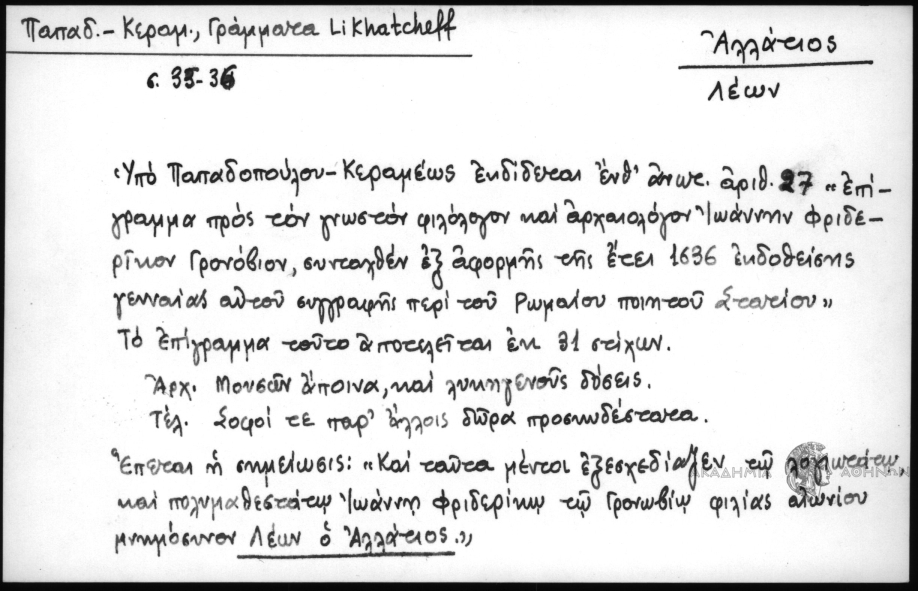 Παπαδ.-Κεραμ., Γράμματα Likhatcheff
Ἀλλάτιος
σ. 35-36
Λέων
Ὑπό Παπαδοπούλου-Κεραμέως ἐκδίδεται ἐνθ' ἀνωτ. ἀριθ. 27 «ἐπί-
γραμμα πρός τόν γνωστόν φιλόλογον καί ἀρχαιολόγον Ἰωάννην Φριδε-
ρῖκον Γρονόβιον, συνταχθέν ἐξ ἀφορμῆς τῆς ἔτει 1636 ἐκδοθείσης
γενναίας αὐτοῦ συγγραφῆς περί τοῦ Ρωμαίου ποιητοῦ Στατίου»
Τό ἐπίγραμμα τοῦτο ἀποτελεῖται ἐκ 31 στίχων.
Ἀρχ. Μουσῶν ἄποινα, καί λυκηγενοῦς δόσεις.
Τέλ. Σοφοί τε παρ' ἄλλοις δῶρα προσκυδέστατα.
Ἕπεται ἡ σημείωσις: «Καί ταῦτα μέντοι ἐξεσχεδίαζεν τῷ λογιωτάτῳ
καί πολυμαθεστάτῳ Ἰωάννῃ Φριδερίκῳ τῷ Γρονωβίῳ φιλίας αἰωνίου
μνημόσυνον Λέων ὁ Ἀλλάτιος.»
ΑΚΑΔΗΜΙΑ ΑΘΗΝΩΝ